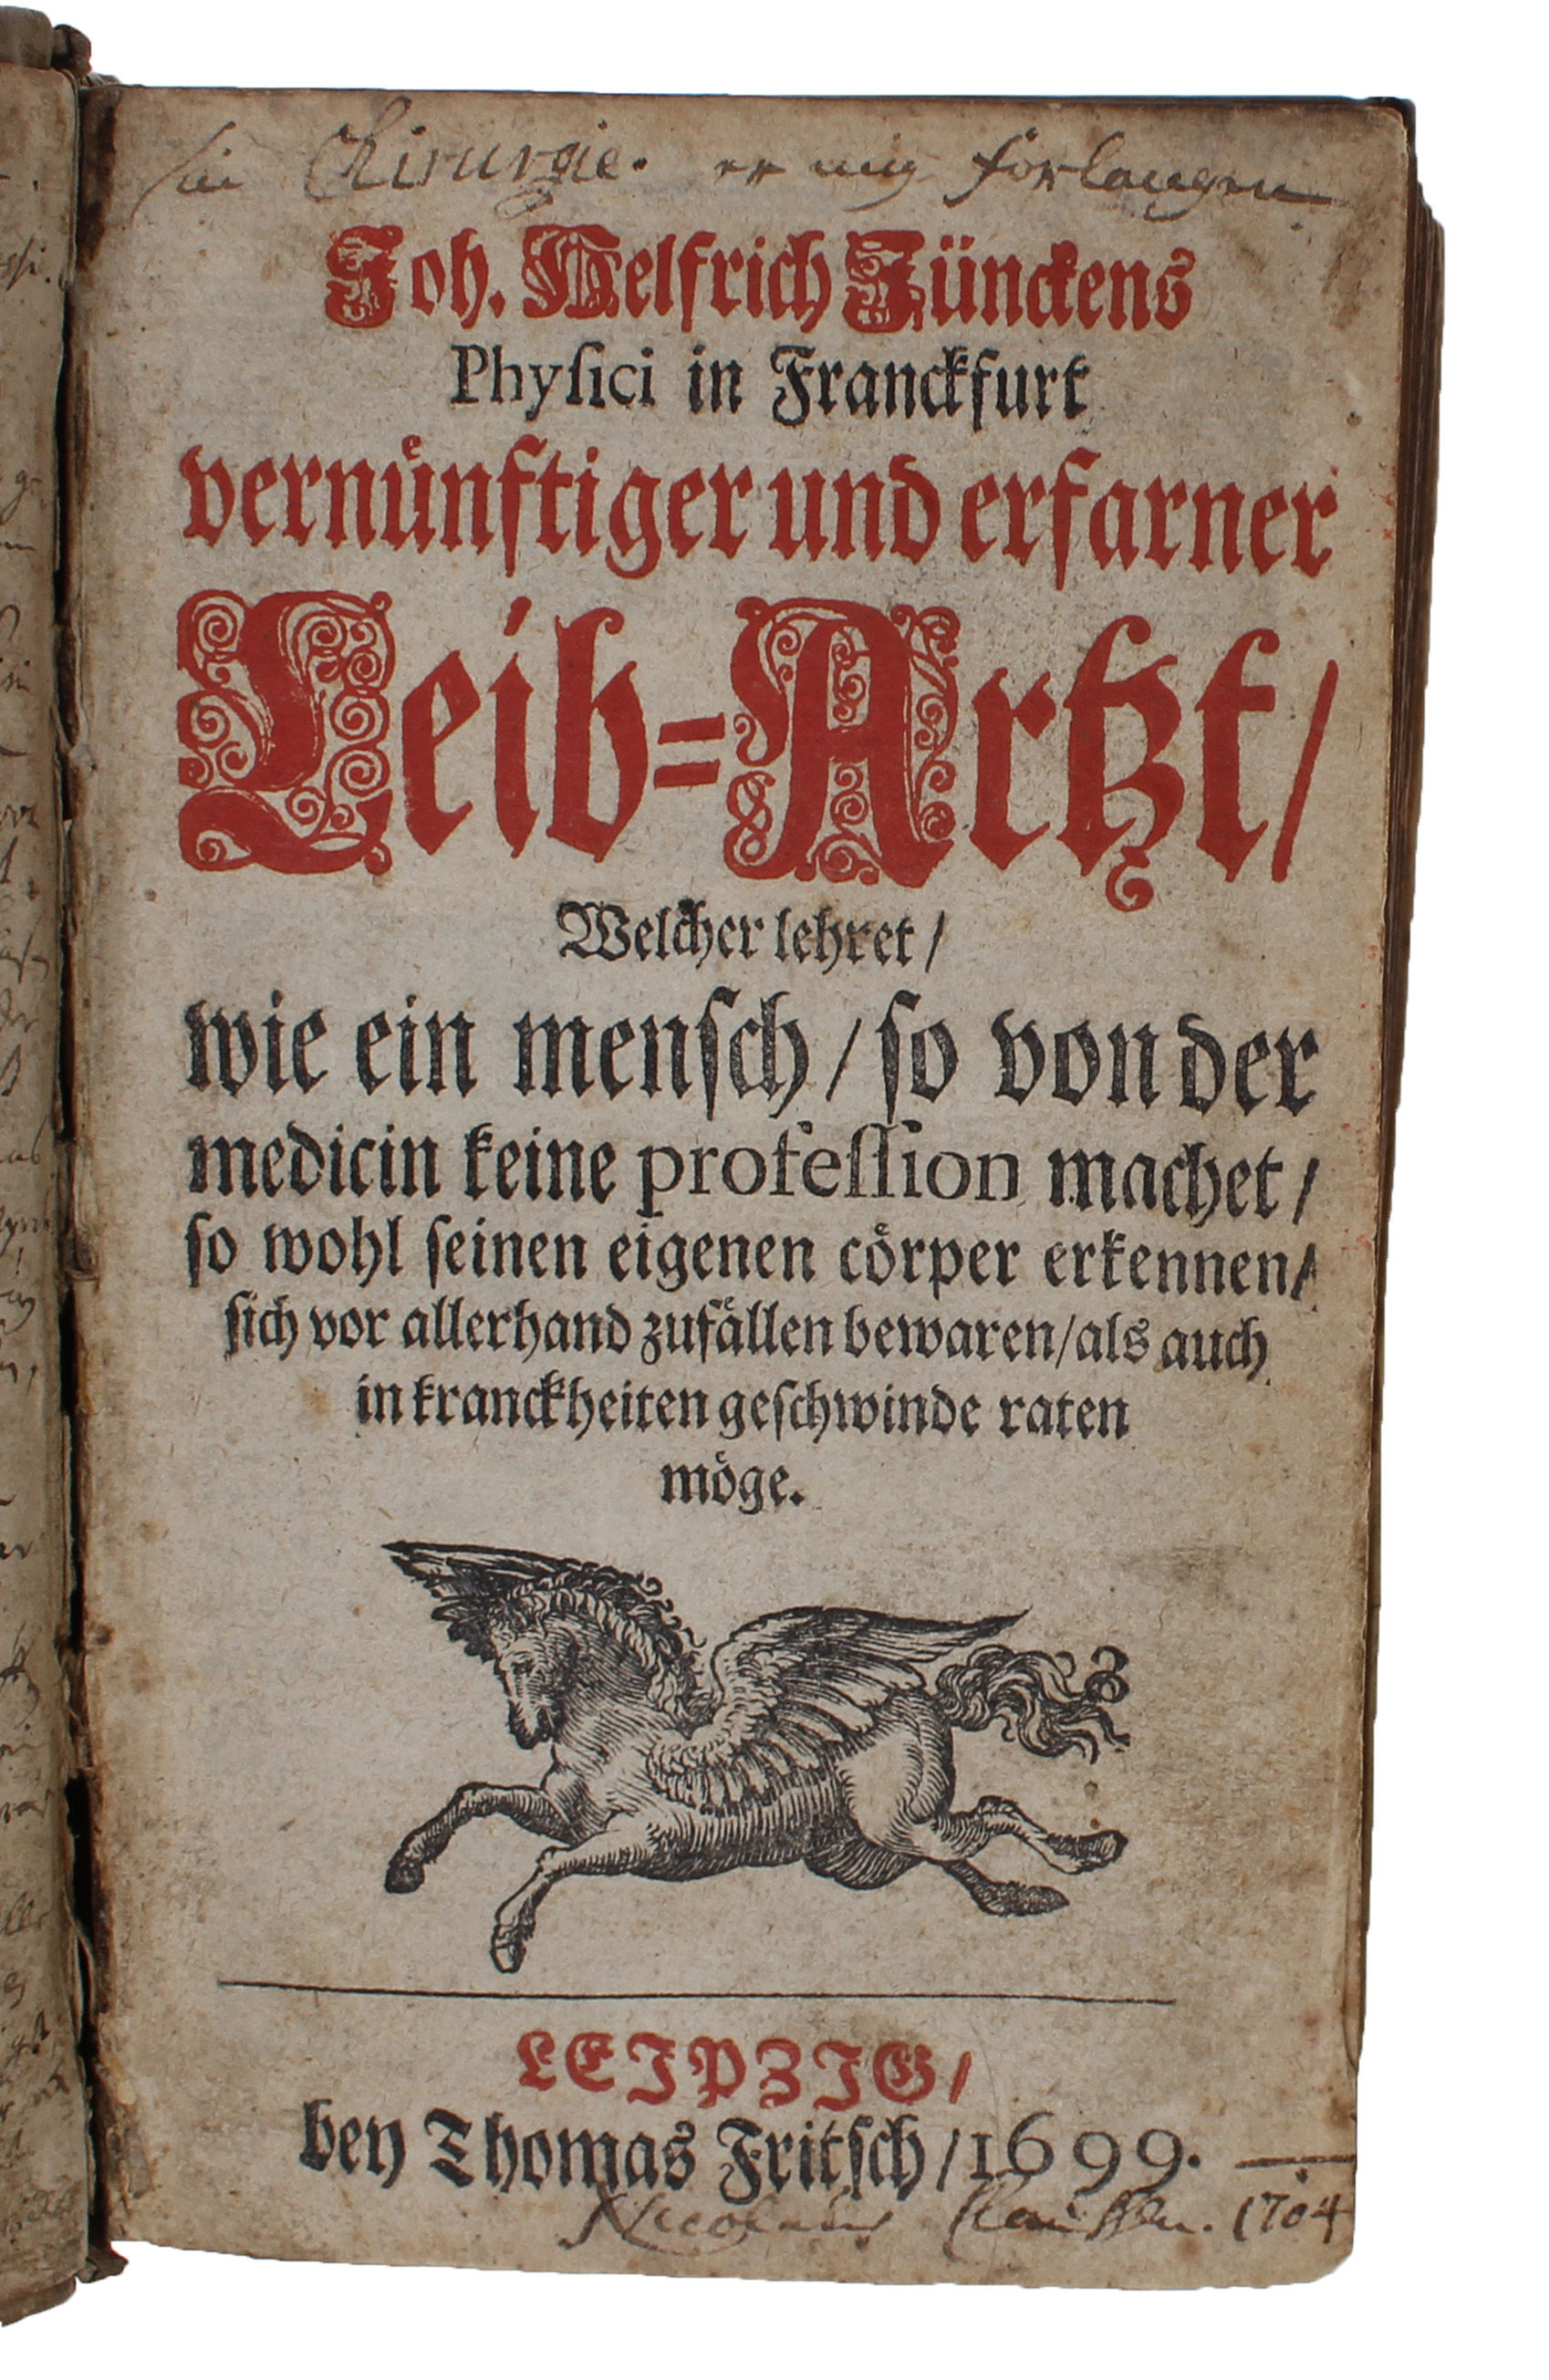 Chirurgie. er mig forlangen
Joh. Helfrich Jünckens
Phyſici in Franckfurt
vernuͤnftiger und erfarner
Leib-Artzt/
Welcher lehret/
wie ein menſch/ ſo von der
medicin keine profeſſion machet/
ſo wohl ſeinen eigenen coͤrper erkennen/
ſich vor allerhand zufaͤllen bewaren/als auch
in kranckheiten geſchwinde raten
moͤge.
LEIPZIG/
bey Thomas Fritſch/1699.
1704